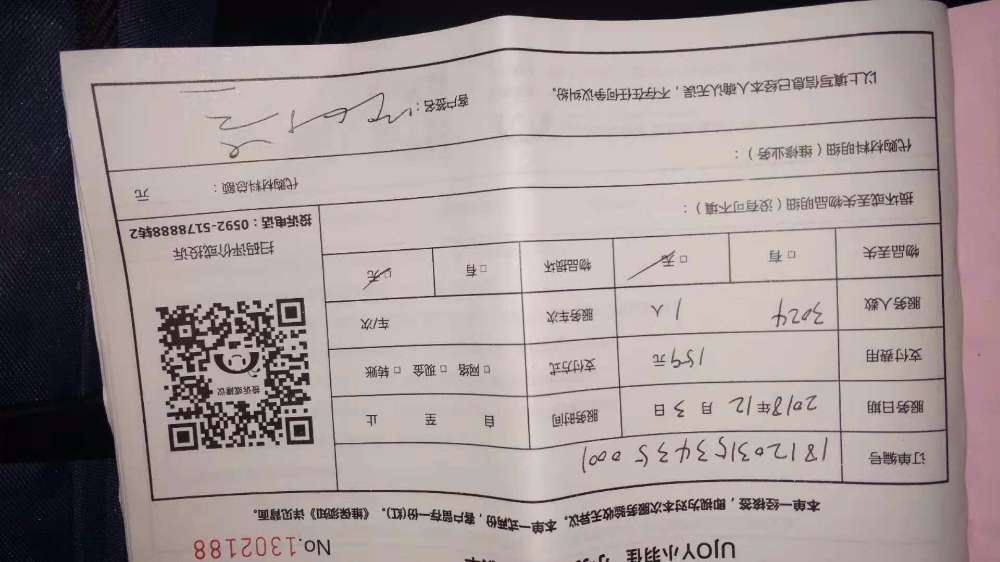 UJOY小羽佳
No.1302188
本单一经核签，即视为对本次服务验收无异议。本单一式两份，客户留存一份(红)。《维保须知》详见背面。
订单编号 181203153435 0001
服务日期 2018年12月3日 服务时间 自 至 止
支付费用 159元 支付方式 □ 网络 □ 现金 □ 转账
服务人数 3024 1人 服务车次 车/次
物品丢失 □ 有 □ 无 物品损坏 □ 有 □ 无
投诉或建议
扫码评价或投诉
投诉电话：0592-5178888转2
损坏或丢失物品明细（没有可不填）：
代购材料明细（维修业务）：
代购材料总额： 元
以上填写信息已经本人确认无误，不存在任何争议纠纷。
客户签名：